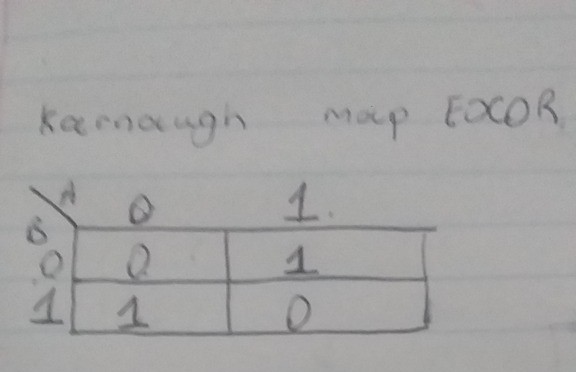 Karnaugh map EXOR
A 0 1
B
0 0 1
1 1 0